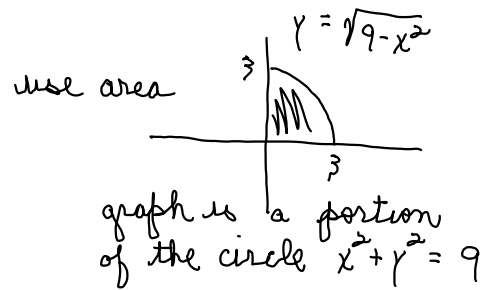 y = √9-x²
3
use area
3
graph is a portion
of the circle x² + y² = 9